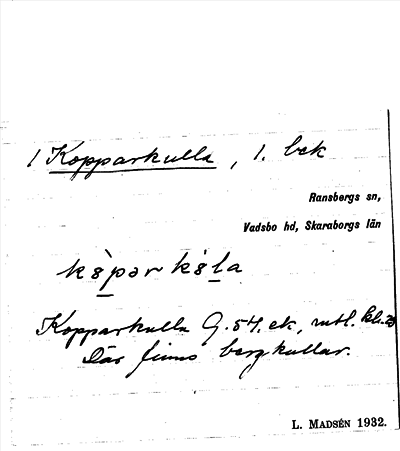 1 Kopparkulla, 1. bck
Ransbergs sn,
Vadsbo hd, Skaraborgs län
Kopparkulla G. 54. ek,
Där finns bergkullar.
L. MADSÉN 1932.